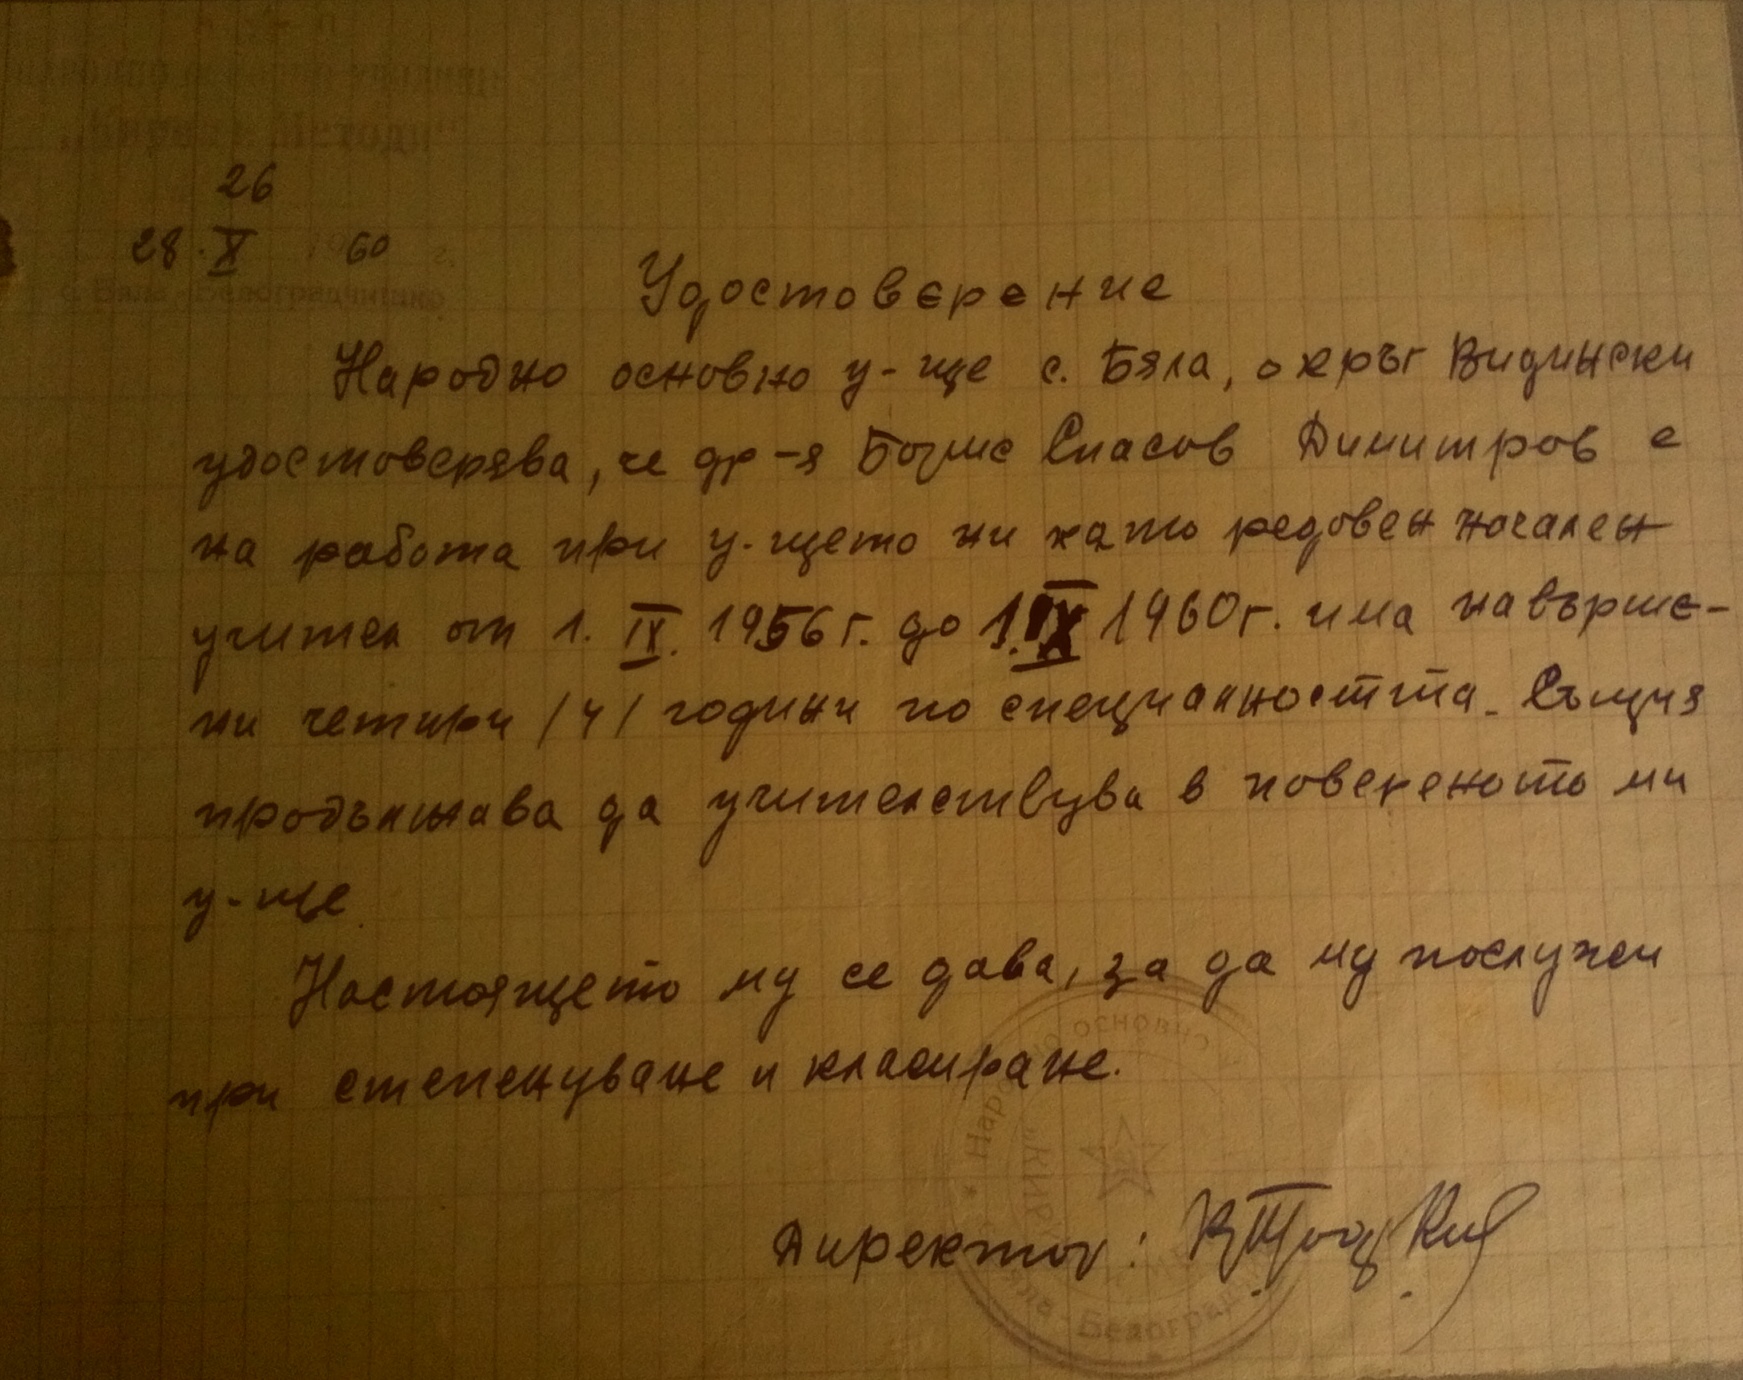 Народно основно училище
„Кирил и Методи"
26
28. X 1960 г.
с. Бяла, Белоградчишко
Удостоверение
Народно основно у-ще с. Бяла, окръг Видински
удостоверява, че др-я Борис Спасов Димитров е
на работа при у-щето ни като редовен начален
учител от 1. IX. 1956 г. до 1. IX 1960 г. има навърше-
ни четири /4/ години по специалността. Същия
продължава да учителствува в повереното ми
у-ще.
Настоящето му се дава, за да му послужи
при степенуване и класиране.
Директор:
* Народно основно
"КИРИЛ
Бяла - Белоград